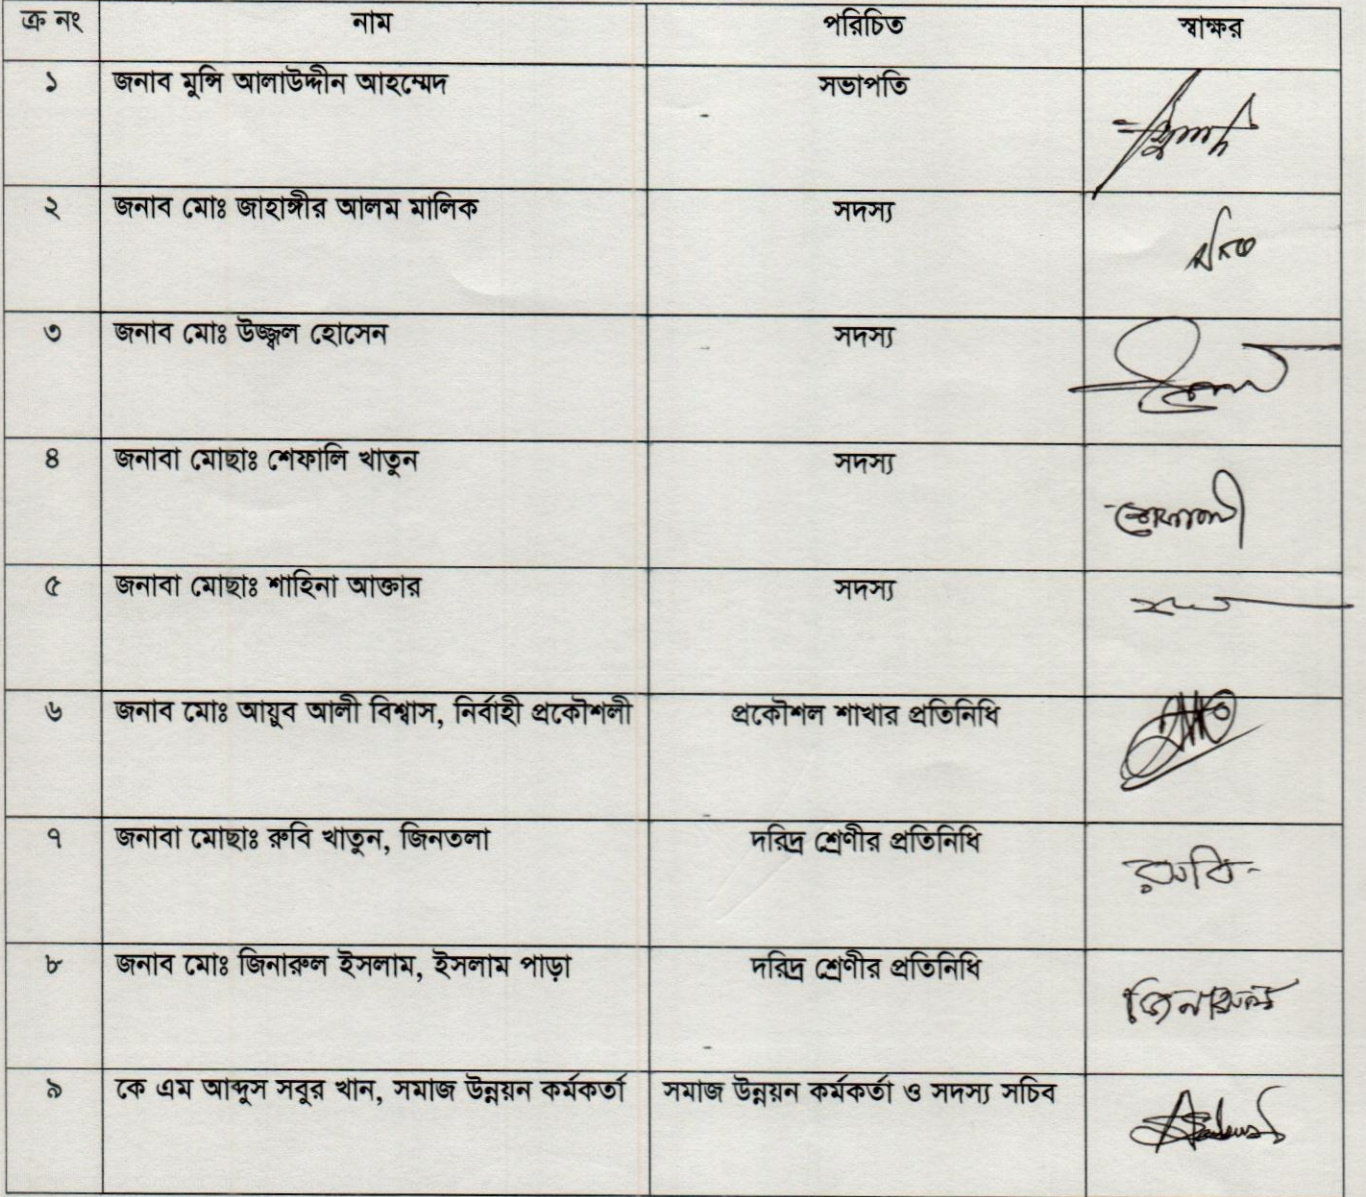 ক্র নং নাম পরিচিত স্বাক্ষর
১ জনাব মুন্সি আলাউদ্দীন আহম্মেদ সভাপতি
২ জনাব মোঃ জাহাঙ্গীর আলম মালিক সদস্য
৩ জনাব মোঃ উজ্জ্বল হোসেন সদস্য
৪ জনাবা মোছাঃ শেফালি খাতুন সদস্য
শেফালী
৫ জনাবা মোছাঃ শাহিনা আক্তার সদস্য
৬ জনাব মোঃ আয়ুব আলী বিশ্বাস, নির্বাহী প্রকৌশলী প্রকৌশল শাখার প্রতিনিধি
৭ জনাবা মোছাঃ রুবি খাতুন, জিনতলা দরিদ্র শ্রেণীর প্রতিনিধি
রুবি
৮ জনাব মোঃ জিনারুল ইসলাম, ইসলাম পাড়া দরিদ্র শ্রেণীর প্রতিনিধি
জিনারুল
৯ কে এম আব্দুস সবুর খান, সমাজ উন্নয়ন কর্মকর্তা সমাজ উন্নয়ন কর্মকর্তা ও সদস্য সচিব